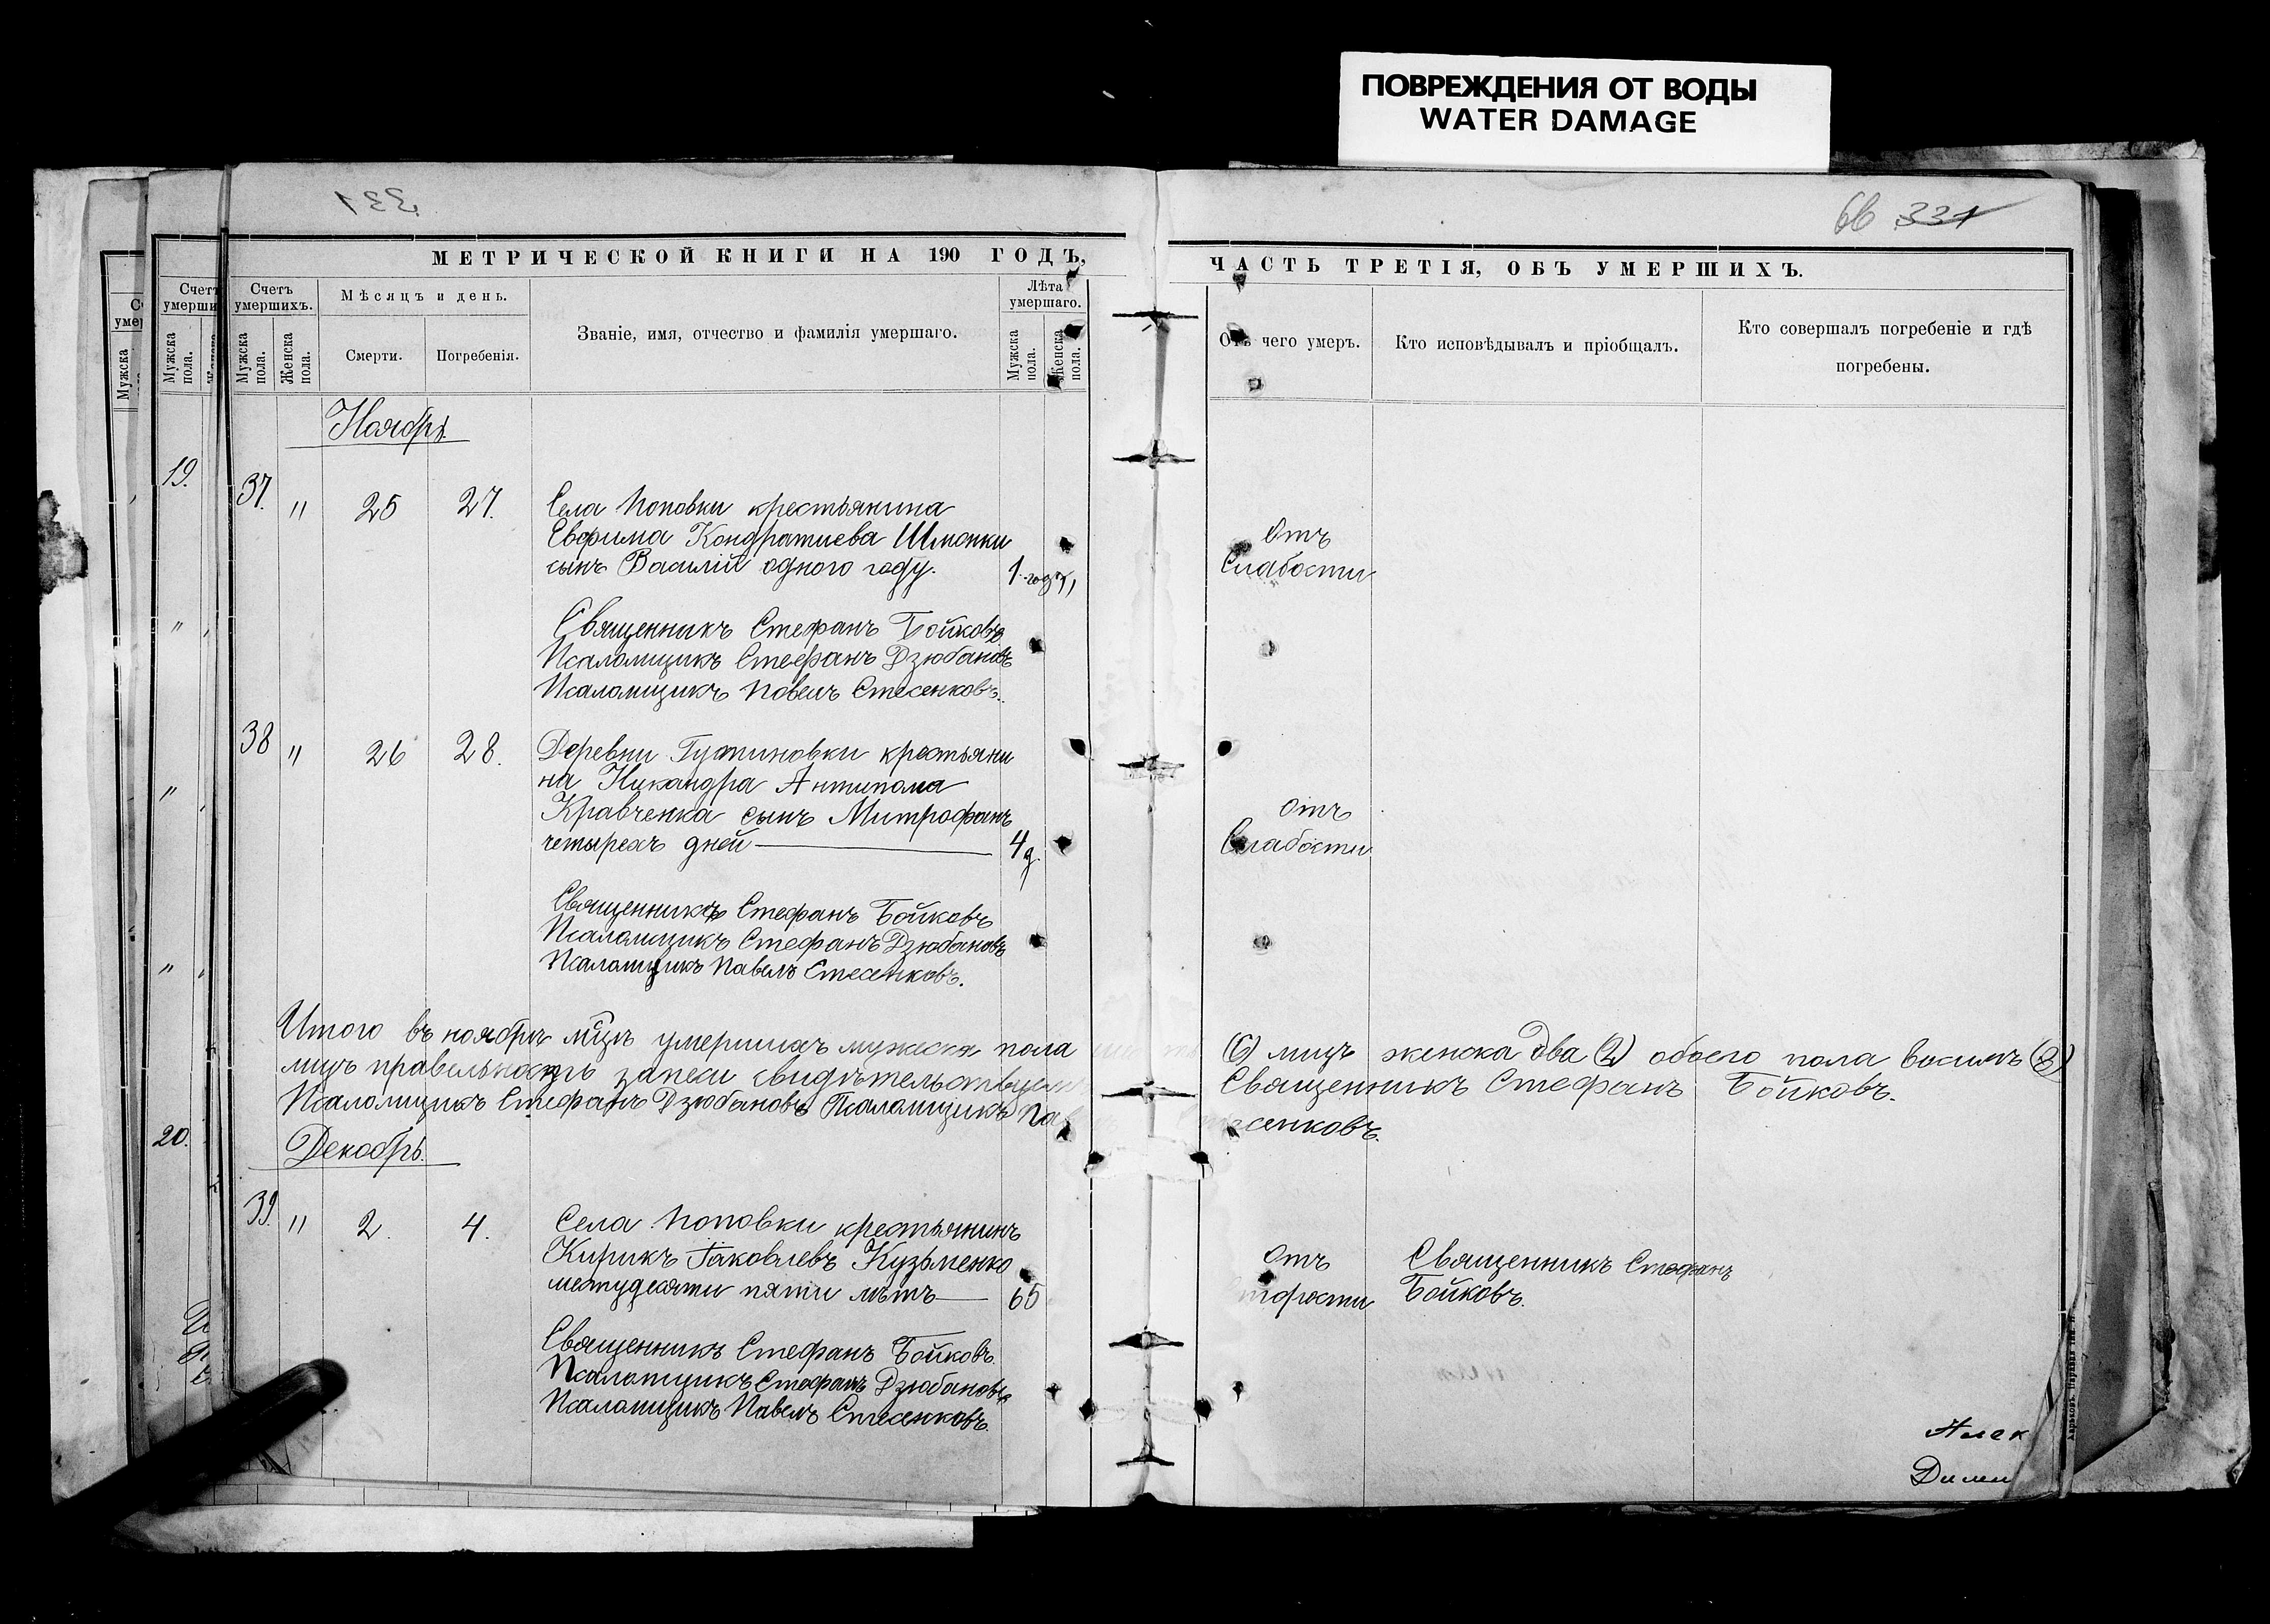 ПОВРЕЖДЕНИЯ ОТ ВОДЫ
WATER DAMAGE
331
66 331
МЕТРИЧЕСКОЙ КНИГИ НА 190 ГОДЪ,
ЧАСТЬ ТРЕТІЯ, ОБЪ УМЕРШИХЪ.
Счетъ умершихъ.
Мѣсяцъ и день.
Званіе, имя, отчество и фамилія умершаго.
Лѣта умершаго.
Мужска пола.
Женска пола.
Смерти.
Погребенія.
Мужска пола.
Женска пола.
Отъ чего умеръ.
Кто исповѣдывалъ и пріобщалъ.
Кто совершалъ погребеніе и гдѣ
погребены.
Ноябрь.
19.
37. " 25 27. Села Поповки крестьянина
Евфима Кондратиева Шмонки
сынъ Василій одного году. 1 годъ "
Отъ
Слабости
Священникъ Стефанъ Бойковъ
Псаломщикъ Стефанъ Дзюбановъ
Псаломщикъ Повелъ Стесенковъ.
38 " 26 28. Деревни Гутиновки крестьяни
на Никандра Антипова
Кравченка сынъ Митрофанъ
четырехъ дней 4 д.
отъ
Слабости
Священникъ Стефанъ Бойковъ
Псаломщикъ Стефанъ Дзюбановъ
Псаломщикъ Павелъ Стесенковъ.
Итого въ ноябрѣ мцѣ умершихъ мужеска пола (6) лицъ женска два (2) обоего пола восимъ (8)
лицъ правельность записи свидѣтельствуем Священникъ Стефанъ Бойковъ.
Псаломщикъ Стефанъ Дзюбановъ Псаломщикъ Пав сенковъ.
20.
Декабрь.
39. " 2. 4. Села Поповки крестьянинъ
Кирикъ Іаковлевъ Кузьменко
шетидесяти пяти лѣтъ 65
отъ
старости
Священникъ Стефанъ
Бойковъ.
Священникъ Стефанъ Бойковъ.
Псаломщикъ Стефанъ Дзюбановъ
Псаломщикъ Павелъ Стесенковъ.
Алек
Дими